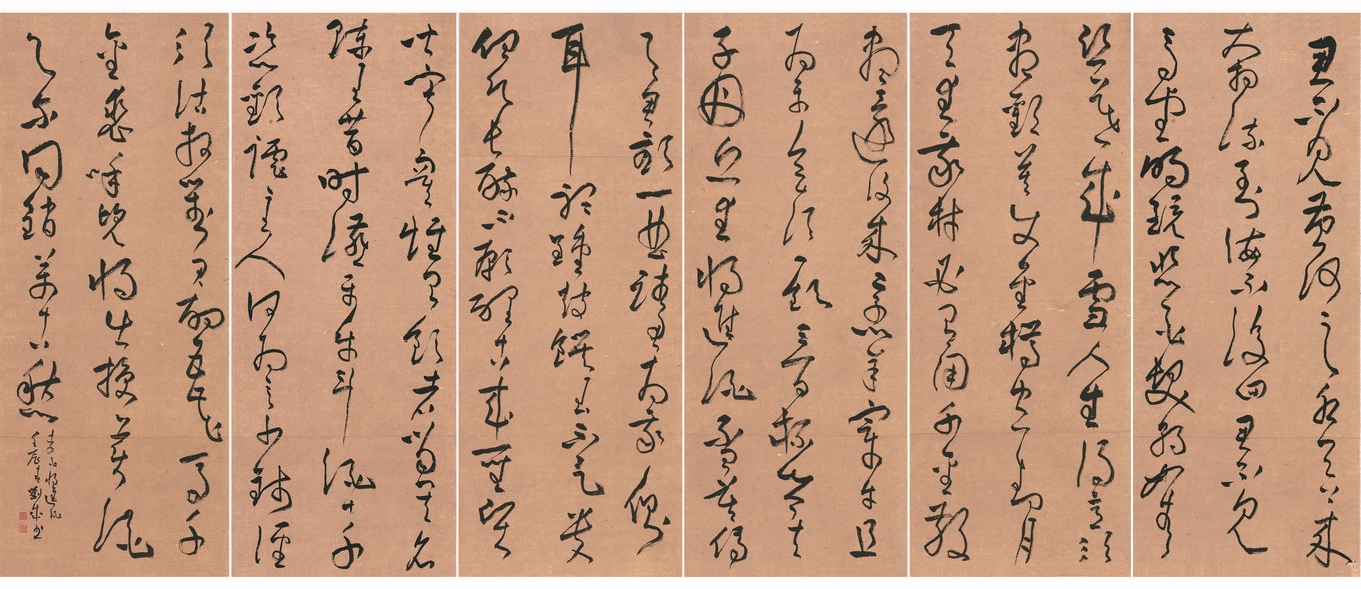 君不見黃河之水天上來
奔流到海不復回君不見
高堂明鏡悲白髮朝如青
絲暮成雪人生得意須
盡歡莫使金樽空對月
天生我材必有用千金散
盡還復來烹羊宰牛且
為樂會須一飲三百杯岑夫
子丹丘生將進酒杯莫停
與君歌一曲請君為我傾
耳聽鐘鼓饌玉不足貴
但願長醉不願醒古來聖賢
皆寂寞惟有飲者留其名
陳王昔時讌平樂斗酒十千
恣歡謔主人何為言少錢徑
須沽取對君酌五花馬千
金裘呼兒將出換美酒
與爾同銷萬古愁
李白將進酒